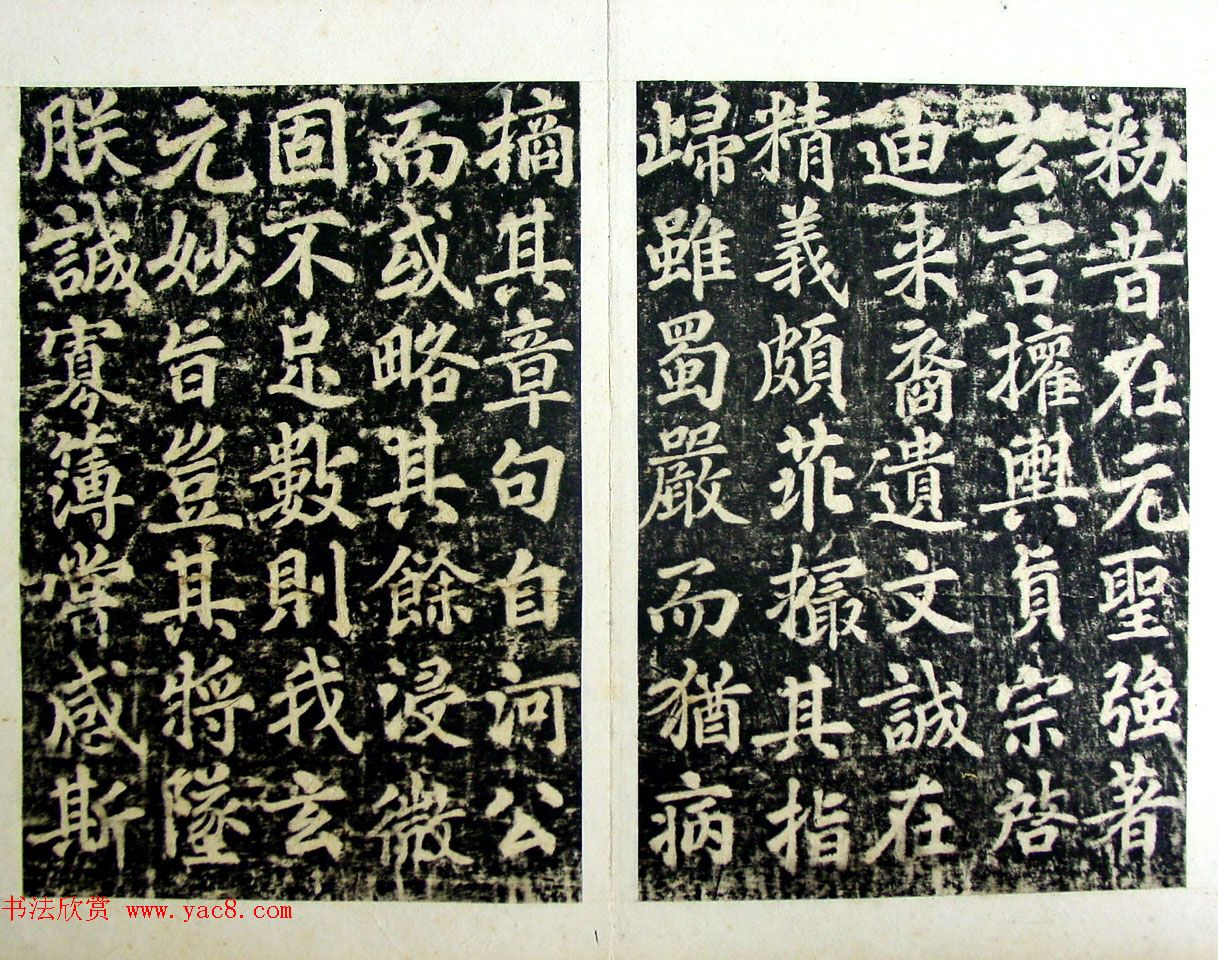 勑昔在元聖強著
玄言權輿貞宗啓
迪来裔遺文誠在
精義頗乖撮其指
歸雖蜀嚴而猶病
摘其章句自河公
而或略其餘浸微
固不足數則我玄
元妙旨豈其將墜
朕誠寡薄嘗感斯
书法欣赏 www.yac8.com